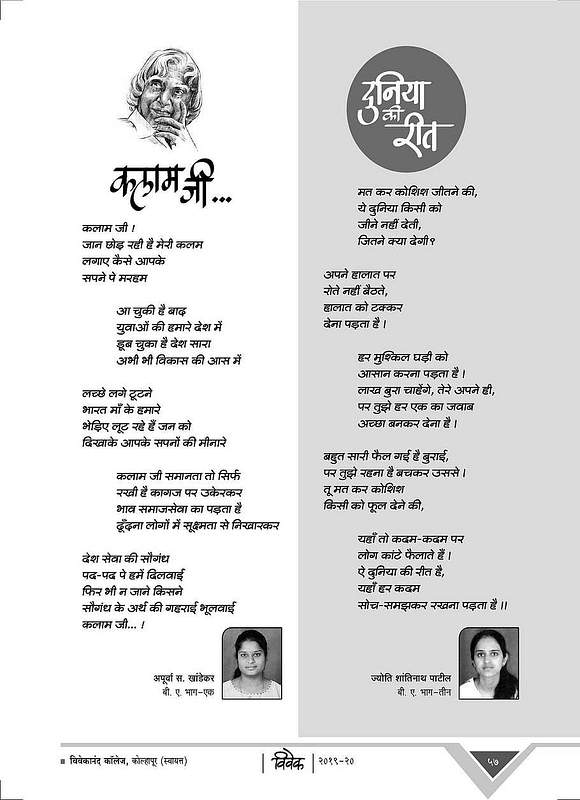 कलाम जी...
कलाम जी !
जान छोड़ रही है मेरी कलम
लगाए कैसे आपके
सपने पे मरहम
आ चुकी है बाढ़
युवाओं की हमारे देश में
डूब चुका है देश सारा
अभी भी विकास की आस में
लच्छे लगे टूटने
भारत माँ के हमारे
भेड़िए लूट रहे हैं जन को
दिखाके आपके सपनों की मीनारे
कलाम जी समानता तो सिर्फ
रखी है कागज पर उकेरकर
भाव समाजसेवा का पड़ता है
ढूँढ़ना लोगों में सूक्ष्मता से निखारकर
देश सेवा की सौगंध
पद-पद पे हमें दिलवाई
फिर भी न जाने किसने
सौगंध के अर्थ की गहराई भूलवाई
कलाम जी... !
अपूर्वा स. खांडेकर
बी. ए. भाग-एक
दुनिया
की
रीत
मत कर कोशिश जीतने की,
ये दुनिया किसी को
जीने नहीं देती,
जितने क्या देगी?
अपने हालात पर
रोते नहीं बैठते,
हालात को टक्कर
देना पड़ता है ।
हर मुश्किल घड़ी को
आसान करना पड़ता है ।
लाख बुरा चाहेंगे, तेरे अपने ही,
पर तुझे हर एक का जवाब
अच्छा बनकर देना है ।
बहुत सारी फैल गई है बुराई,
पर तुझे रहना है बचकर उससे ।
तू मत कर कोशिश
किसी को फूल देने की,
यहाँ तो कदम-कदम पर
लोग कांटे फैलाते हैं ।
ऐ दुनिया की रीत है,
यहाँ हर कदम
सोच-समझकर रखना पड़ता है ।।
ज्योति शांतिनाथ पाटील
बी. ए. भाग-तीन
विवेकानंद कॉलेज, कोल्हापूर (स्वायत्त)
विवेक
२०१९-२०
५७